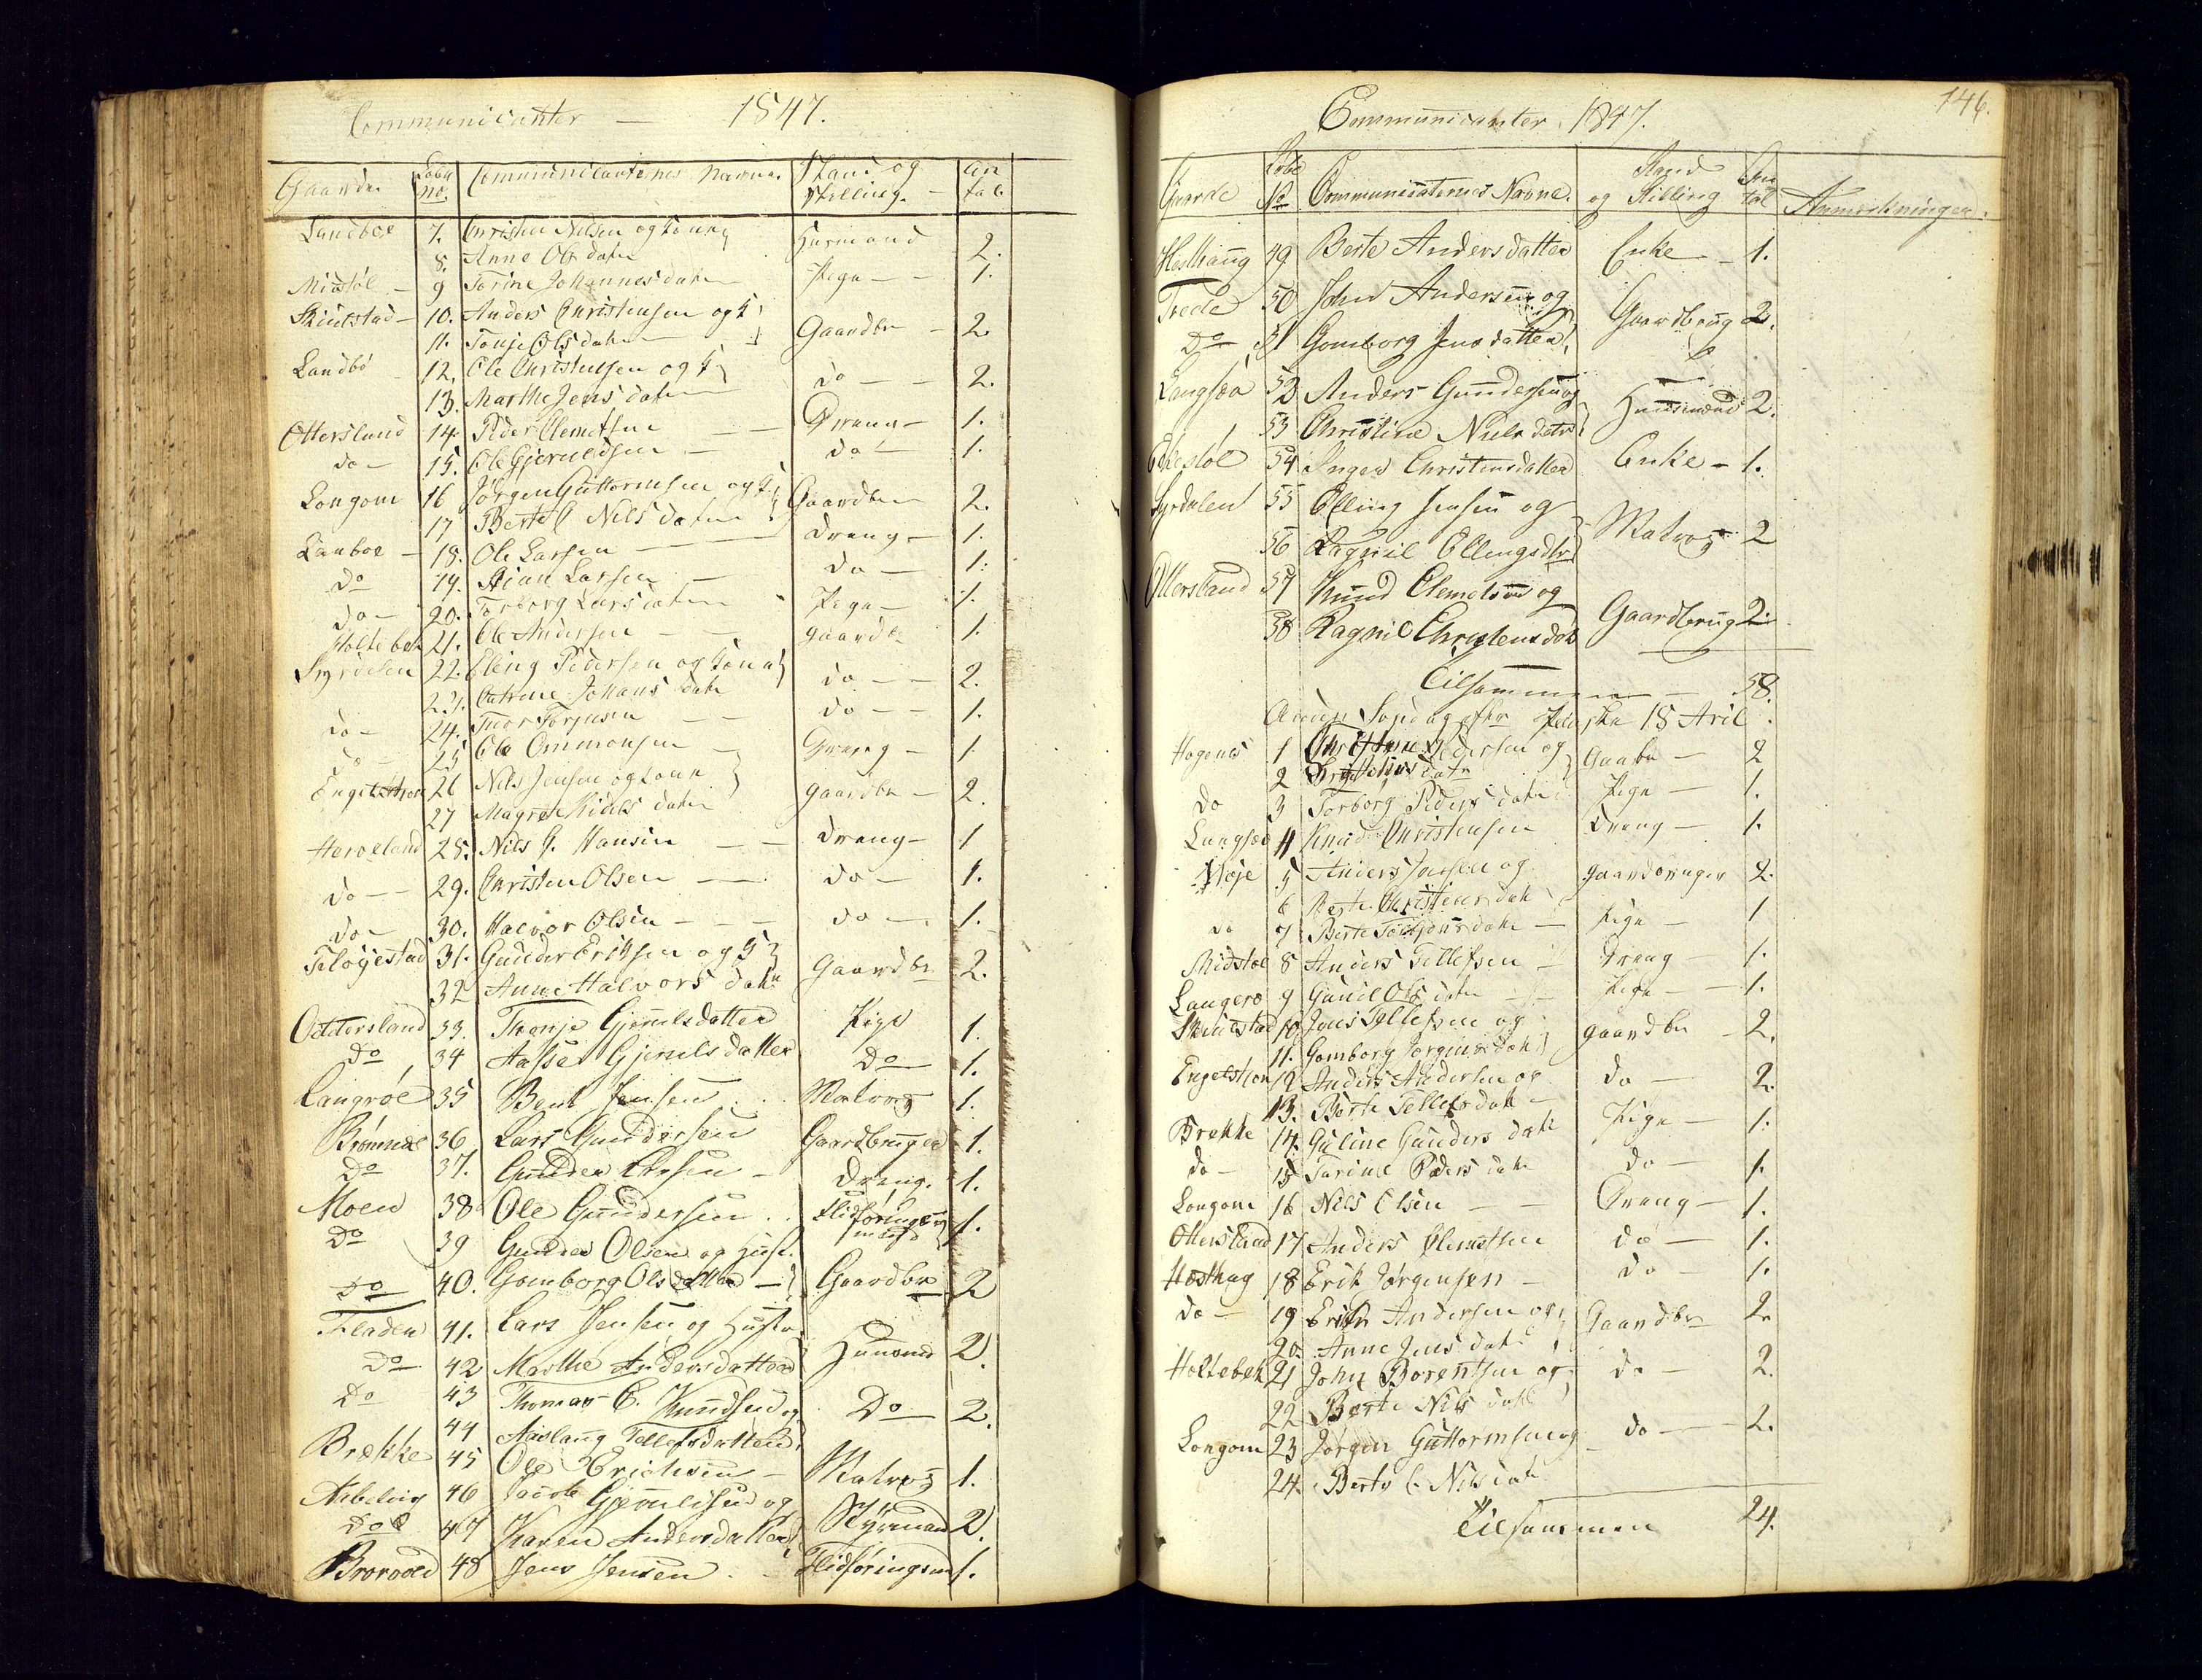 Communicanter — 1847.
Gaarde Løbe No. Communicanternes Navne. Stand og Stilling. Antal.
Landboe 7. Christen Nilsen og Kone Huusmand 2.
8. Anne Ols datter
Midstøl — 9 Torine Johannesdatter Pige — 1.
Skiulstad — 10. Anders Christensen og K Gaardbr — 2.
11. Tonje Olsdatter
Landbø 12. Ole Christensen og K do — 2.
13. Marthe Jensdatter
Ottersland 14. Peder Clemetsen Dreng — 1.
do — 15. Ole Gjeruldsen — do — 1.
Longom 16 Jørgen Guttormsen og K Gaardbr 2.
17 Berte C Nilsdatter
Lanboe — 18. Ole Larsen — Dreng — 1.
do 19. Stian Larsen — do — 1.
do — 20. Torborg Larsdatter Pige — 1.
Holtebek 21. Ole Andersen — gaardbr 1.
Syrdalen 22. Eling Pedersen og Kone do — 2.
23. Catrine Johans datr
do — 24. Thor Torjusen — do — 1.
do — 25 Ole Ommonsen — Dreng — 1
26 Nils Jensen og Kone gaardbr — 2.
27 datter
28. Nils J. Hansen — dreng — 1
do — 29. Christen Olsen — do — 1.
do — 30. Halvor Olsen — do — 1.
31. Gunder Eriksen og K Gaardbr 2.
32 Anne Halvors datr
Ottersland 33. Thonje Gjerulsdatter Pige 1.
Do 34 Gjerulsdatter Do 1.
Langrøe 35 Bent Jensen Matros 1.
36 Lars Gundersen Gaardbruger 1.
Do 37. Gunder Larsen — Dreng. 1.
Moen 38 Ole Gundersen 1.
Do 39 Gunder Olsen og Hust.
Do 40. Gomborg Olsdatter — Gaardbr 2
Fladen 41. Lars Jensen og Hustr. Huusmd 2.
Do 42 Marthe Andersdatter
Do 43 Thomas C. Knudsen og Do 2.
44 Aaslaug Tellefsdatter
Brekke 45 Ole Erichsen — Matros 1.
46 Jacob Gjeruldsen og Styrmand 2.
Do 47 Karen Andersdatter
48 Jens Jensen Flidføringsm 1.
146.
Communicanter 1847.
Gaarde Løbe No Communicanternes Navne. Stand og Stilling Antal Anmærkninger.
Hesthaug 49 Berte Andersdatter Enke — 1.
Trede 50 John Andersen og Gaardbrug 2.
Do 51 Gomborg Jensdatter
Langsæa 52 Anders Gundersen og Huusmand 2.
53 Christine Niels datr
54 Inger Christensdatter Enke — 1.
Syrdalen 55 Elling Jensen og Matros 2
56 Ragnil Ellingsdtr
Ottersland 57 Knud Clemetsen og Gaardbrug 2.
58 Ragnil Christensdat
Tilsammen — 58.
Anden Søndag efter Paaske 18 Aril
Hagenes 1 Christen Pedersen og Gaabr — 2
2 datr
do 3 Torborg Peders datr Pige — 1.
Langsæe 4 Knud Christensen Dreng — 1.
5 Anders Jensen og gaardbruger 2.
6 Berte Christens datr
do 7 Berte datr — Pige — 1
Midstøl 8 Anders Tellefsen — Dreng — 1.
Langerø 9 Gunil Ols datr — Pige — 1.
Skiulstad 10. Jens Tellefsen og gaardbr — 2.
11. Gomborg Jørgens datr
12 Anders Andersen og do — 2.
13. Berte Tellefs datr —
Brekke 14. Guline Gunders datr Pige — 1.
do — 15 Torine Peders datr do — 1.
Longom 16 Nils Olsen — Dreng — 1.
Ottersland 17 Anders Clemetsen do — 1.
Hæsthag 18 Erik Jørgensen — do — 1.
do — 19 Erik Andersen og Gaardbr 2.
20. Anne Jens datr
Holtebek 21 John Borentsen og do — 2.
22 Berte Nils datr
Longom 23 Jørgen Guttormsen og do — 2.
24. Berte C. Nils datr
Tilsammen 24.